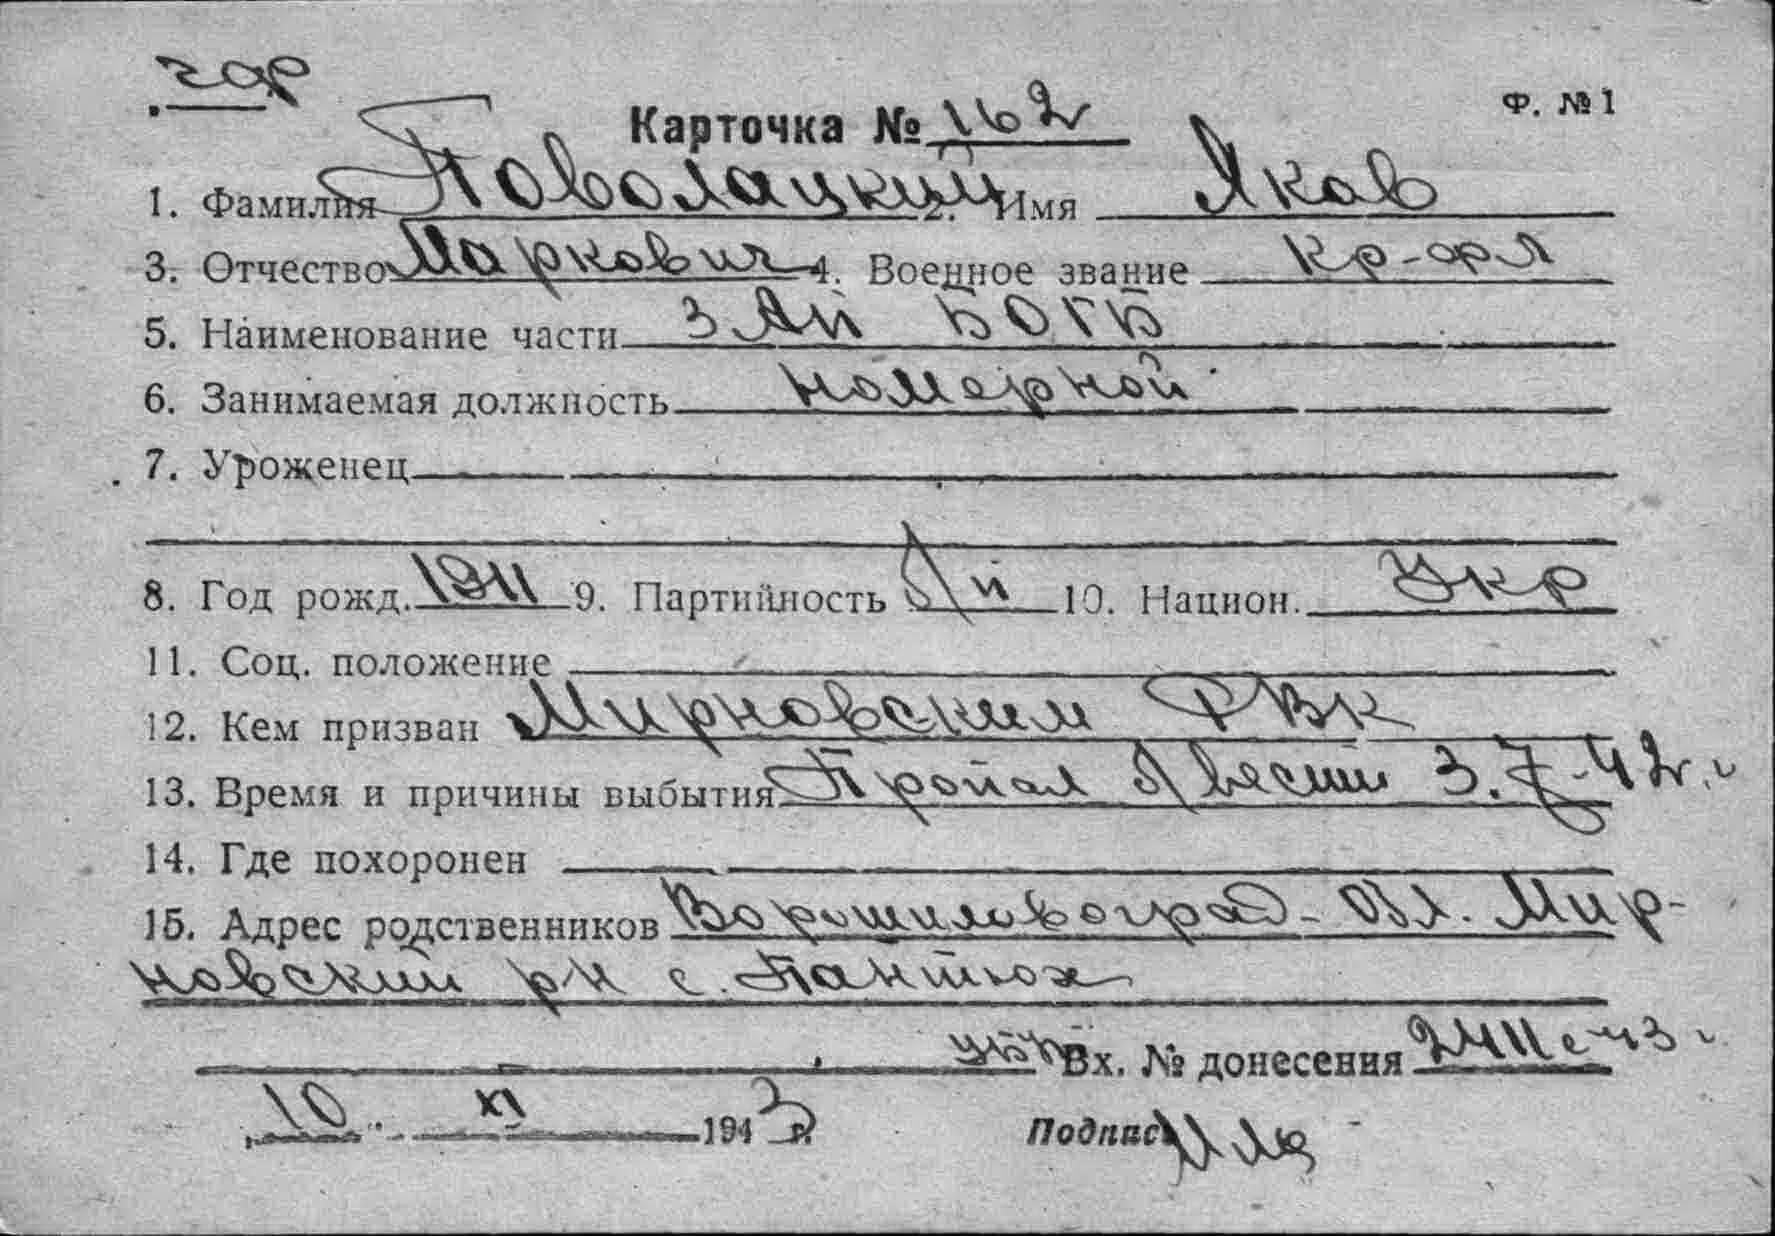 Ф. №1
Карточка № 162
1. Фамилия Поволацкий 2. Имя Яков
3. Отчество Маркович 4. Военное звание Кр-арм
5. Наименование части 3 АП БОГБ
6. Занимаемая должность номерной
7. Уроженец
8. Год рожд. 1911 9. Партийность б/п 10. Национ. Укр
11. Соц. положение
12. Кем призван Мирновским РВК
13. Время и причины выбытия Пропал б/вести 3.7-42г.
14. Где похоронен
15. Адрес родственников Ворошиловоград-Обл. Мир-
новский рн с. Пантюх
Вх. № донесения 2411с-43
10 XI 1943 г.
Подпись